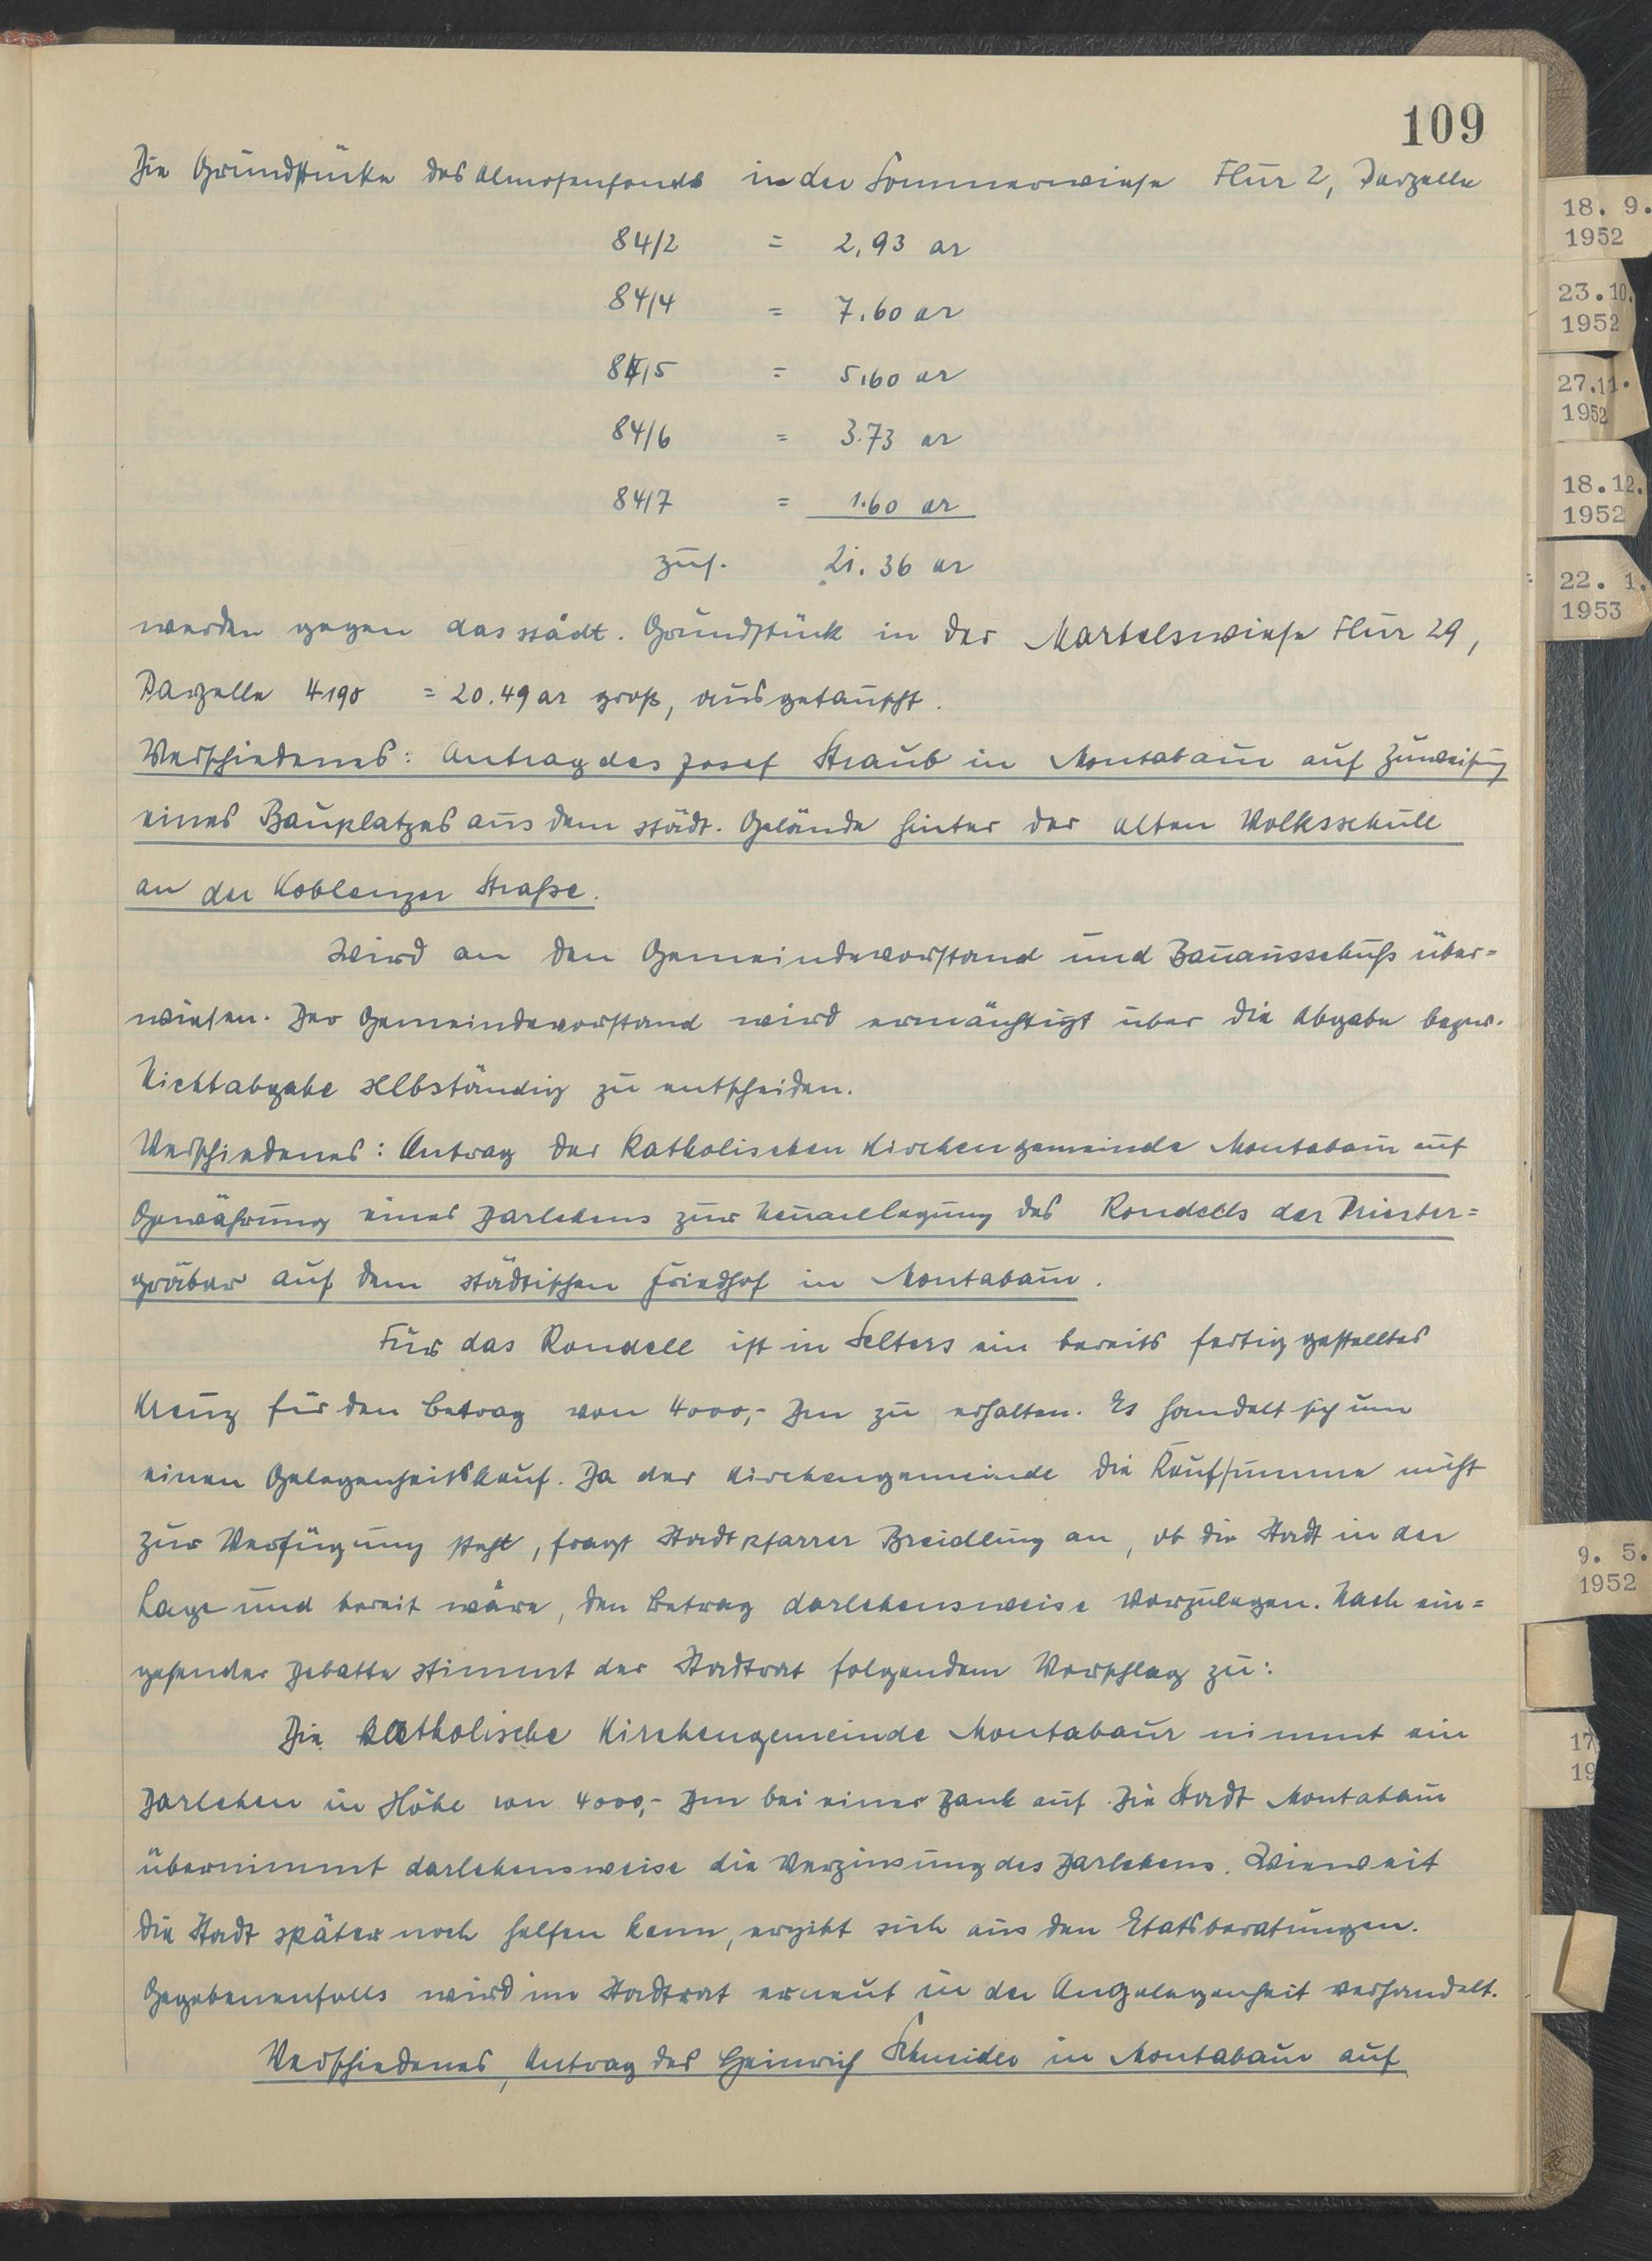 109
Die Grundstücke des Almosenfonds in der Sommerwiese Flur 2, Parzelle
84/2 = 2,93 ar
84/4 = 7.60 ar
84/5 = 5,60 ar
84/6 = 3.73 ar
84/7 = 1.60 ar
zus. 21.36 ar
werden gegen das städt. Grundstück in der Martelswiese Flur 29,
Parzelle 4198 = 20.49 ar groß, ausgetauscht.
Verschiedenes: Antrag des Josef Straub in Montabaur auf Zuweisung
eines Bauplatzes aus dem städt. Gelände hinter der alten Volksschule
an der Koblenzer Straße.
Wird an den Gemeindevorstand und Bauausschuß über=
wiesen. Der Gemeindevorstand wird ermächtigt über die Abgabe bezw.
Nichtabgabe selbständig zu entscheiden.
Verschiedenes: Antrag der Katholischen Kirchengemeinde Montabaur auf
Gewährung eines Darlehens zur Neuanlegung des Rondells der Priester=
gräber auf dem städtischen Friedhof in Montabaur.
Für das Rondell ist in Selters ein bereits fertig gestelltes
Kreuz für den Betrag von 4000,- Dm zu erhalten. Es handelt sich um
einen Gelegenheitskauf. Da der Kirchengemeinde die Kaufsumme nicht
zur Verfügung steht, fragt Stadtpfarrer Breidling an, ob die Stadt in der
Lage und bereit wäre, den Betrag darlehensweise vorzulegen. Nach ein=
gehender Debatte stimmt der Stadtrat folgendem Vorschlag zu:
Die katholische Kirchengemeinde Montabaur nimmt ein
Darlehen in Höhe von 4000,- Dm bei einer Bank auf. Die Stadt Montabaur
übernimmt darlehensweise die Verzinsung des Darlehens. Wieweit
die Stadt später noch helfen kann, ergibt sich aus den Etatsberatungen.
Gegebenenfalls wird im Stadtrat erneut in der Angelegenheit verhandelt.
Verschiedenes, Antrag des Heinrich Schneider in Montabaur auf
18. 9.
1952
23.10.
1952
27.11.
1952
18.12.
1952
22. 1.
1953
9. 5.
1952
17
19